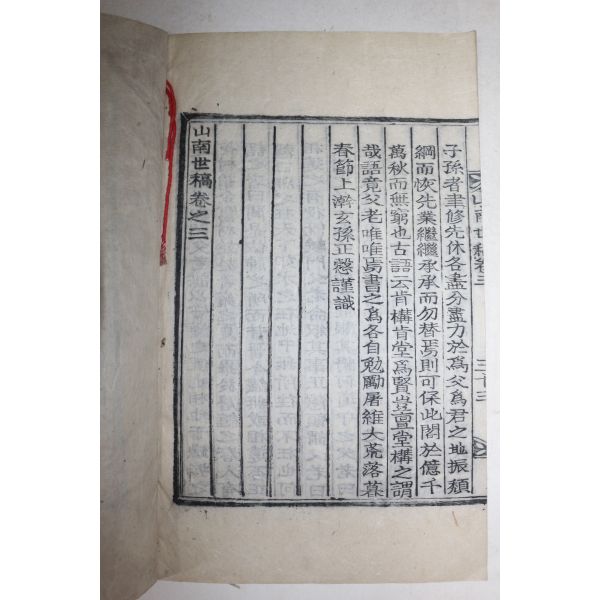 山南世稿卷三
三百三
子孫者聿修先休各盡分盡力於爲父爲君之地振頹
綱而恢先業繼繼承承而勿替焉則可保此閣於億千
萬秋而無窮也古語云肯構肯堂爲賢豈亶堂構之謂
哉語竟父老唯唯焉書之爲各自勉勵屠維大荒落暮
春節上澣玄孫正愨謹識
山南世稿卷之三